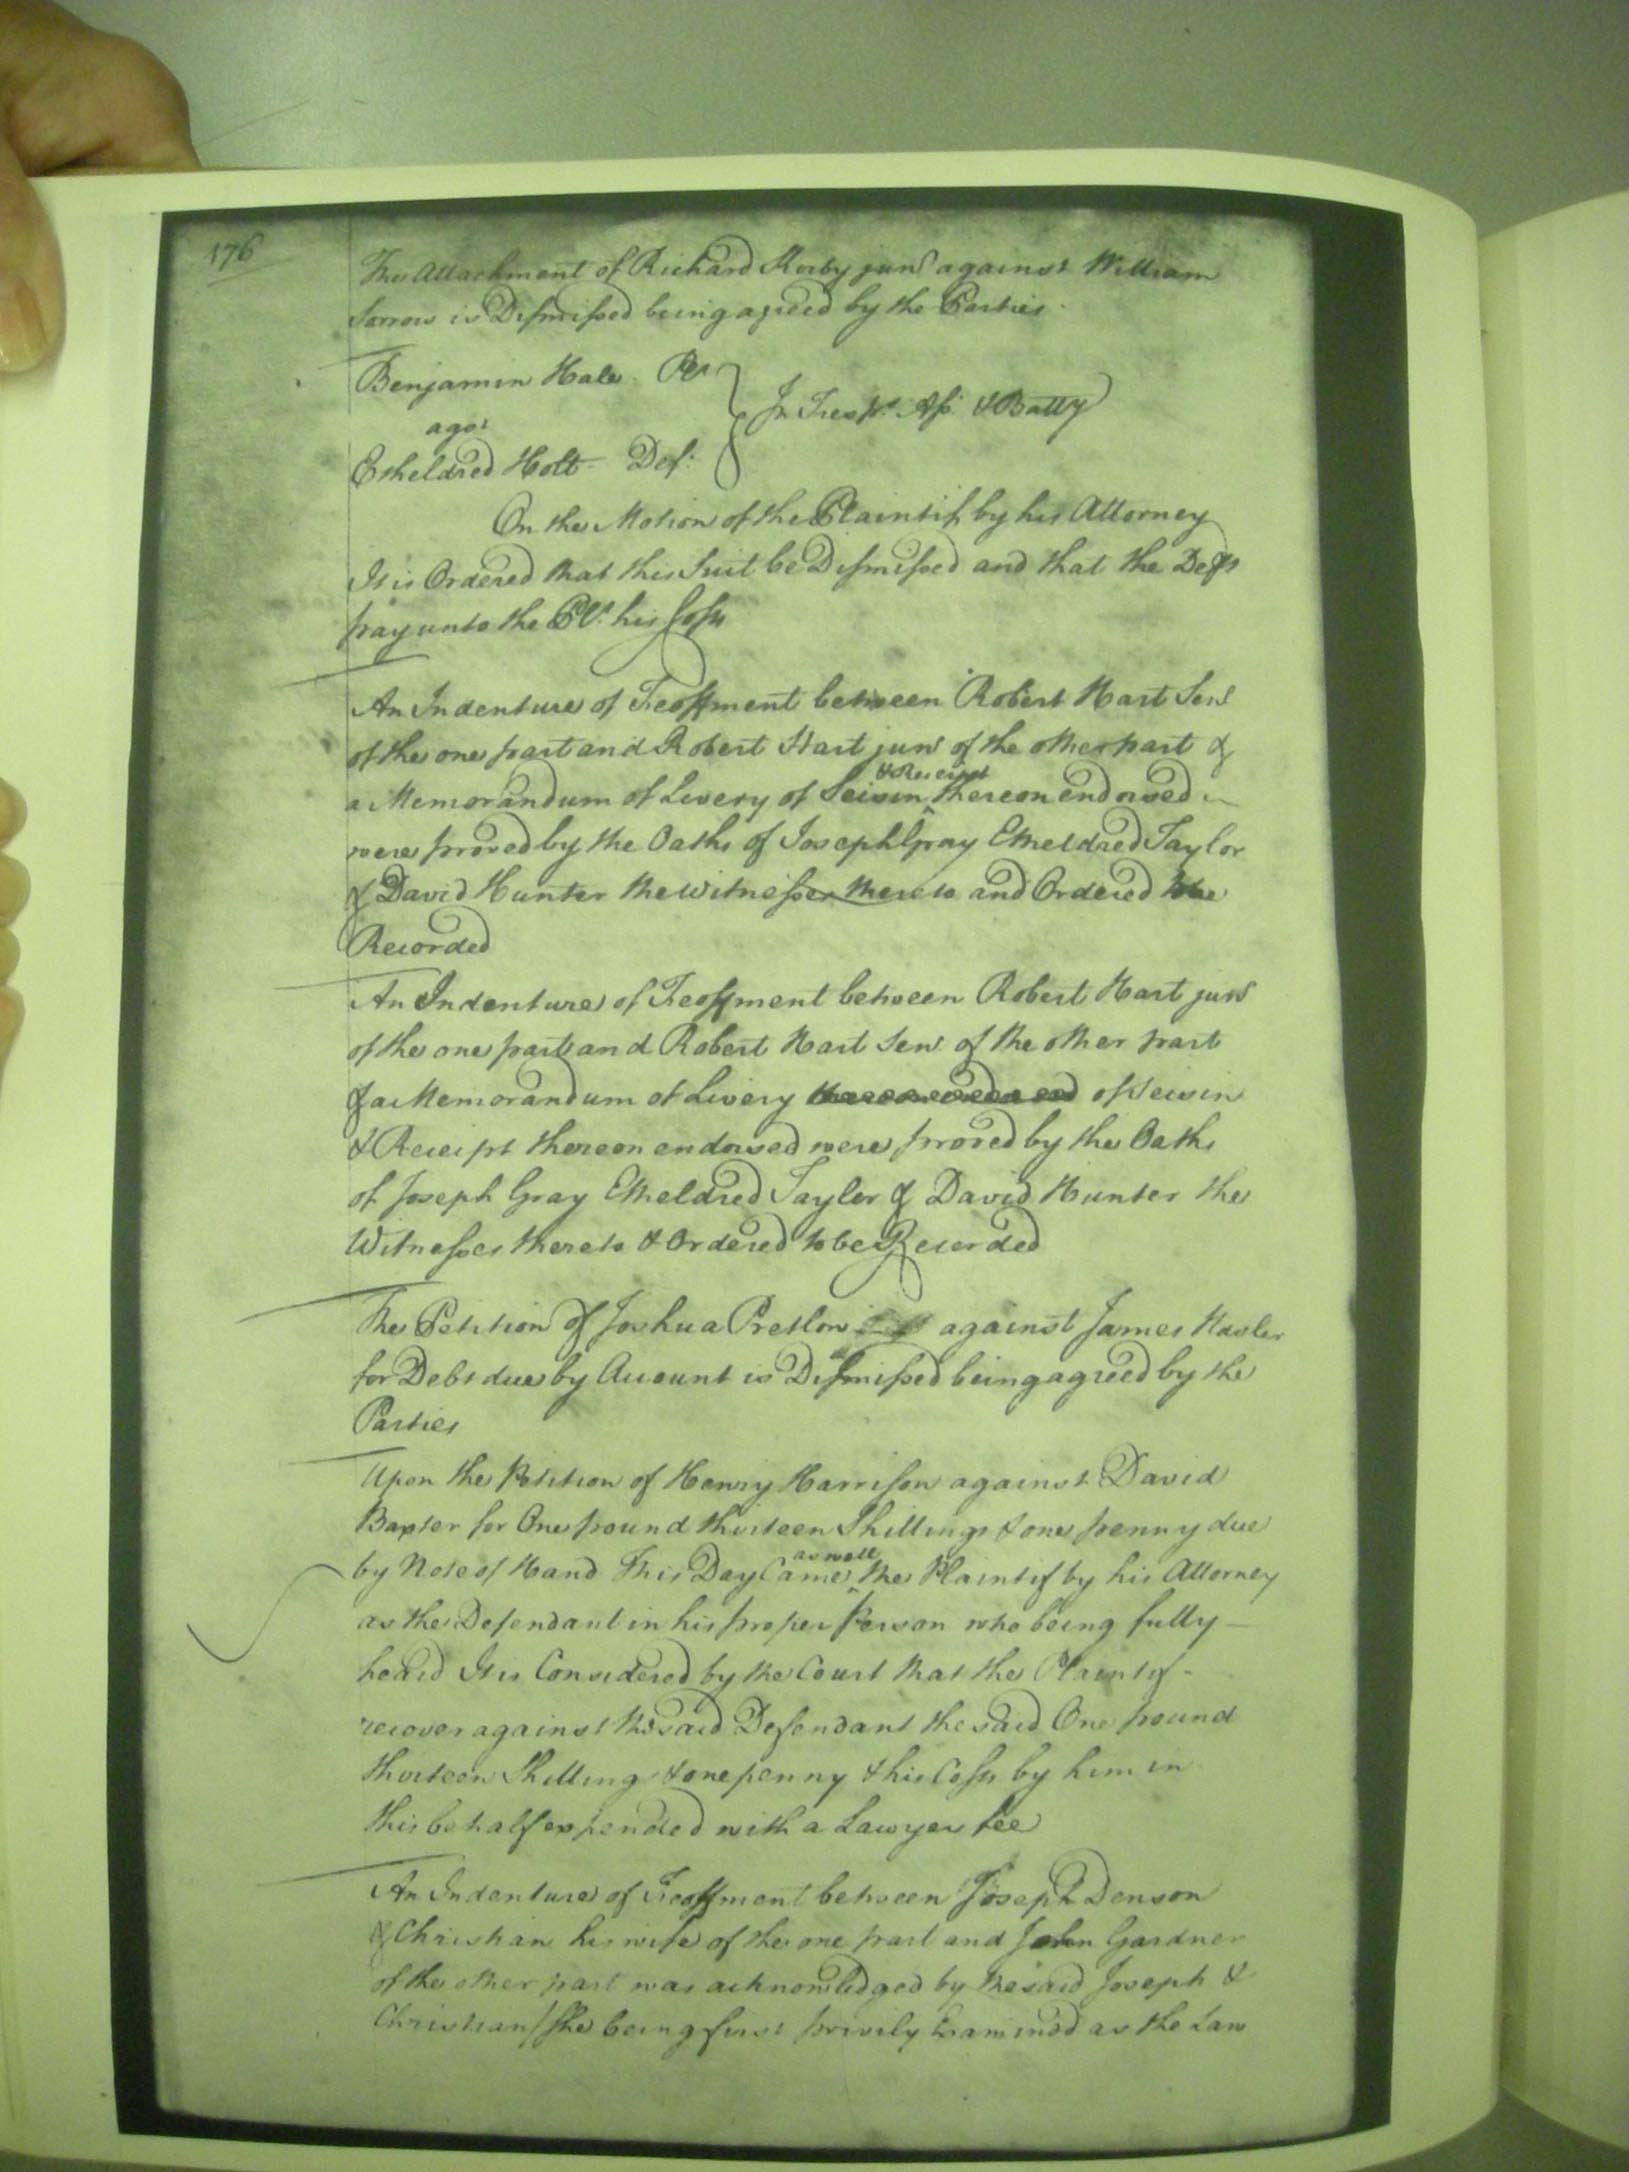 176
The Attachment of Richard Kerby junr against William
Sorrow is Dismissed being agreed by the Parties
Benjamin Hale Pl
agst
Etheldred Holt Def:
In Tresps. Ass. & Batty
On the Motion of the Plaintif by his Attorney
It is Ordered that this Suit be Dismissed and that the Deft
pay unto the Pl. his Costs
An Indenture of Feoffment between Robert Hart Senr
of the one part and Robert Hart junr of the other part &
a Memorandum of Livery of Seisin & Receipt thereon endorsed
were proved by the Oaths of Joseph Gray Etheldred Taylor
& David Hunter the Witnesses thereto and Ordered to be
Recorded
An Indenture of Feoffment between Robert Hart junr
of the one part and Robert Hart Senr of the other part
& a Memorandum of Livery of Seisin
& Receipt thereon endorsed were proved by the Oaths
of Joseph Gray Etheldred Taylor & David Hunter the
Witnesses thereto & Ordered to be Recorded
The Petition of Joshua Pretlow against James Hasler
for Debt due by Account is Dismissed being agreed by the
Parties
Upon the Petition of Henry Harrison against David
Baxter for One pound thirteen Shillings & one penny due
by Note of Hand This Day Came as well the Plaintif by his Attorney
as the Defendant in his proper Person who being fully
heard It is Considered by the Court that the Plaintif
recover against the said Defendant the said One pound
thirteen Shilling & one penny & his Costs by him in
this behalf expended with a Lawyers fee
An Indenture of Feoffment between Joseph Denson
& Christian his wife of the one part and John Gardner
of the other part was acknowledged by the said Joseph &
Christian /She being first privily Examined as the Law